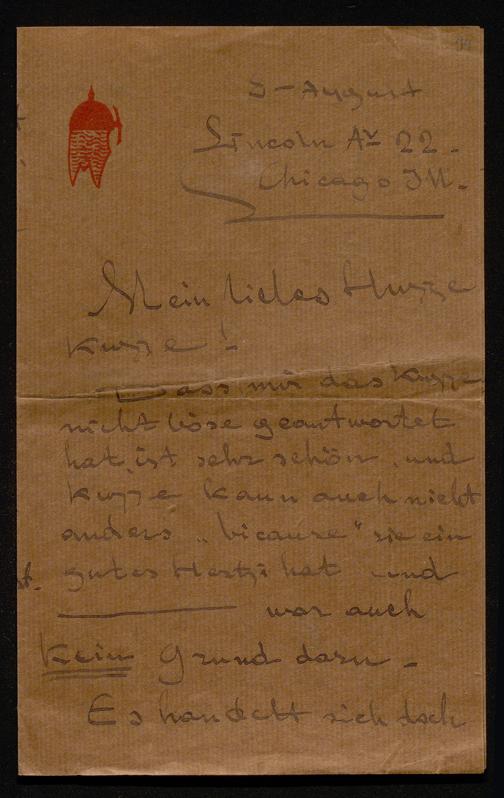 3 - August
Lincoln Av 22 -
Chicago Ill -
Mein liebes Huzze
Kuzze!
Dass mir das Kuzze
nicht böse geantwortet
hat, ist sehr schön, und
Kuzze kann auch nicht
anders „bicause" sie ein
gutes Hertzi hat und
war auch
kein Grund darzu -
Es handelt sich doch